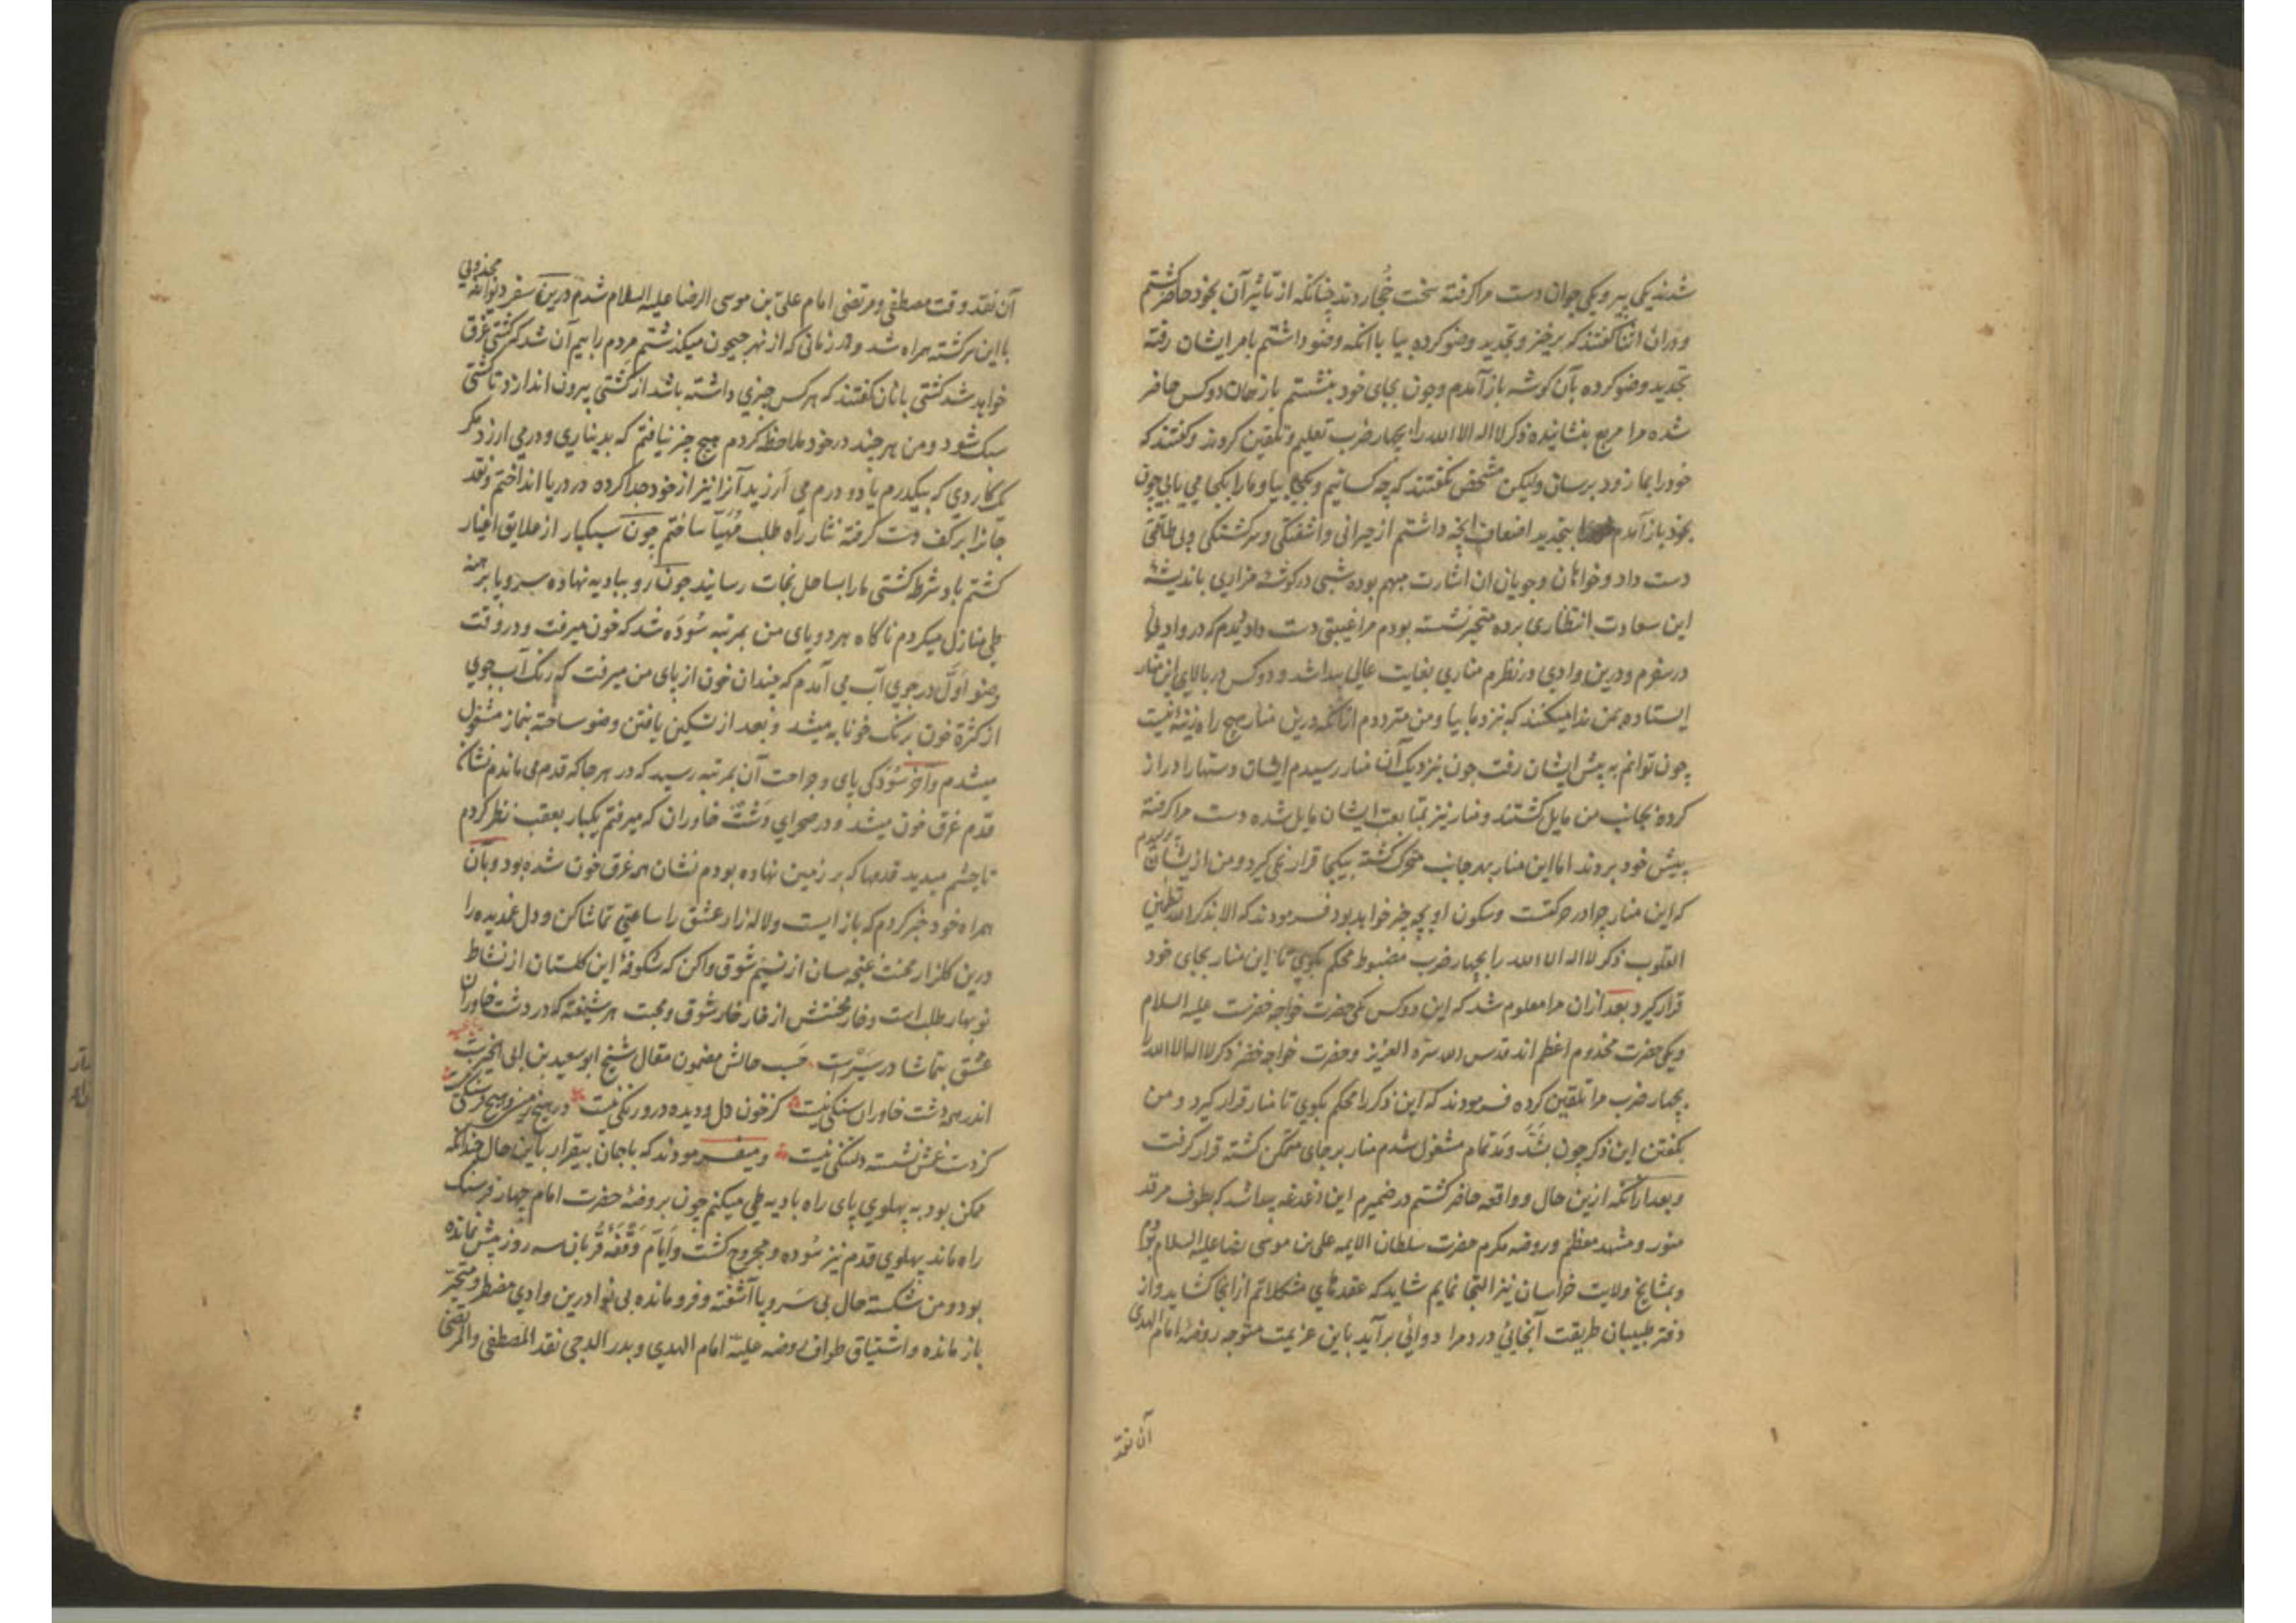 شدند یکی پیر و یکی جوان دست مرا گرفته سخت خُجاردند چنانکه از تاثیر آن بخود حاضر گشتم
و دران اثنا گفتند که برخیز و تجدید وضو کرده بیا با انکه وضو داشتم بامر ایشان رفته
تجدید وضو کرده بآن گوشه باز آمدم و چون بجای خود بنشستم باز همان دو کس حاضر
شده مرا مربع بنشانیده ذکر لا اله الا الله را بچهار ضرب تعلیم و تلقین کردند و گفتند که
خود را بما زود برسان ولیکن مشخص نگفتند که چه کسانیم و بکجا بیا و ما را بکجا می یابی چون
بخود باز آمدم بتجدید اضعاف انچه داشتم از حیرانی و اشفتگی و سرگشتگی و بی طاقتی
دست داد و خواهان و جویان ان اشارت مبهم بوده شبی در گوشهٔ مزاری باندیشهٔ
این سعادت انتظاری برده متحیر نشسته بودم مرا غیبتی دست داد دیدم که در وادیی
در سفرم و درین وادی در نظرم مناری بغایت عالی پیدا شد و دو کس در بالای این منار
ایستاده بمن ندا میکنند که نزد ما بیا و من مترددم از آنکه درین منار هیچ راه زینه نیست
چون توانم به پیش ایشان رفت چون بنزدیک آن منار رسیدم ایشان دستها را دراز
کرده بجانب من مایل گشتند و منار نیز بمتابعت ایشان مایل شده دست مرا گرفته
پیش خود بردند اما این منار بهر جانب متحرک گشته بیکجا قرار نمی گیرد و من از ایشان پرسیدم
که این منار چرا در حرکتست و سکون او بچه چیز خواهد بود فرمودند که الا بذکر الله تطمئن
القلوب ذکر لا اله الا الله را بچهار ضرب مضبوط محکم بگوی تا این منار بجای خود
قرار گیرد بعد ازان مرا معلوم شد که این دو کس یکی حضرت خواجه خضرست علیه السلام
و یکی حضرت مخدوم اعظم اند قدس الله سره العزیز و حضرت خواجه خضر ذکر لا اله الا الله را
بچهار ضرب مرا تلقین کرده فرمودند که این ذکر را محکم بگوی تا منار قرار گیرد و من
بگفتن این ذکر چون بشَدّ و مَدّ تمام مشغول شدم منار بر جای متمکن گشته قرار گرفت
و بعد از انکه ازین حال و واقعه حاضر گشتم در ضمیرم این دغدغه پیدا شد که بطوف مرقد
منور و مشهد معظم و روضه مکرم حضرت سلطان الایمه علی بن موسی رضا علیه السلام روم
و بمشایخ ولایت خراسان نیز التجا نمایم شاید که عقدهای مشکلاتم از انجا کشاید و از
دفتر طبیبان طریقت آنجائی درد مرا دوائی برآید باین عزیمت متوجه روضهٔ امام الهدی
آن نقد
آن نقد وقت مصطفی و مرتضی امام علی بن موسی الرضا علیه السلام شدم درین سفر دیوانهٔ مجذوبی
با این سرگشته همراه شد و در زمانی که از نهر جیحون میگذشتیم مردم را بیم آن شد که کشتی غرق
خواهد شد کشتی بانان گفتند که هر کس چیزی داشته باشد از کشتی بیرون اندازد تا کشتی
سبک شود و من هر چند در خود ملاحظه کردم هیچ چیز نیافتم که بدیناری و درمی ارزد مگر
یک کاردی که بیکدرم یا دو درم می ارزید آنرا نیز از خود جدا کرده در دریا انداختم و نقد
جانرا بر کف دست گرفته نثار راه طلب مُهیّا ساختم چون سبکبار از علایق اغیار
گشتم باد شرطه کشتی ما را بساحل نجات رسانید چون رو ببادیه نهاده سر و پا برهنه
طی منازل میکردم ناگاه هر دو پای من بمرتبه سُودَه شد که خون میرفت و در وقت
وضو اوّل در جوی آب می آمدم که چندان خون از پای من میرفت که رنگ آب جوی
از کثرة خون برنگ خونابه میشد و بعد از تسکین یافتن وضو ساخته بنماز مشغول
میشدم و آخر سُودَگی پای و جراحت آن بمرتبه رسید که در هر جا که قدم می ماندم نشان
قدم غرق خون میشد و در صحرای دَشتْ خاوران که میرفتم یکبار بعقب نظر کردم
تا چشم میدید قدمها که بر زمین نهاده بودم نشان همه غرق خون شده بود و بآن
همراه خود خبر کردم که باز ایست و لاله زار عشق را ساعتی تماشا کن و دل غمدیده را
درین گلزار محنت غنچه سان از نسیم شوق واکن که شکوفهٔ این گلستان از نشاط
نوبهار طلب است و خار محنتش از خار خار شوق و محبت هر شیفته که در دشت خاوران
عشق بتماشا در سَیْرست حسب حالش مضمون مقال شیخ ابو سعید بن ابی الخیرست
اندر همه دشت خاوران سنگی نیست کز خون دل و دیده درو رنگی نیست در هیچ زمین و هیچ فرسنگی نیست
کز دست غمش نشسته دلتنگی نیست و میفرمودند که با جان بیقرار باین حال چندانکه
ممکن بود به پهلوی پای راه بادیه طی میکنم چون بروضهٔ حضرت امام چهار فرسنگ
راه ماند پهلوی قدم نیز سُوده و مجروح گشت و ایّام وَقْفَهٔ قُربان سه روز بیش نمانده
بود و من شکسته حال بی سَر و پا آشفته و فرومانده بی نوا درین وادی مضطر و متحیّر
باز مانده و اشتیاق طواف روضه علیّه امام الهدی و بدر الدجی نقد المصطفی و المرتضی